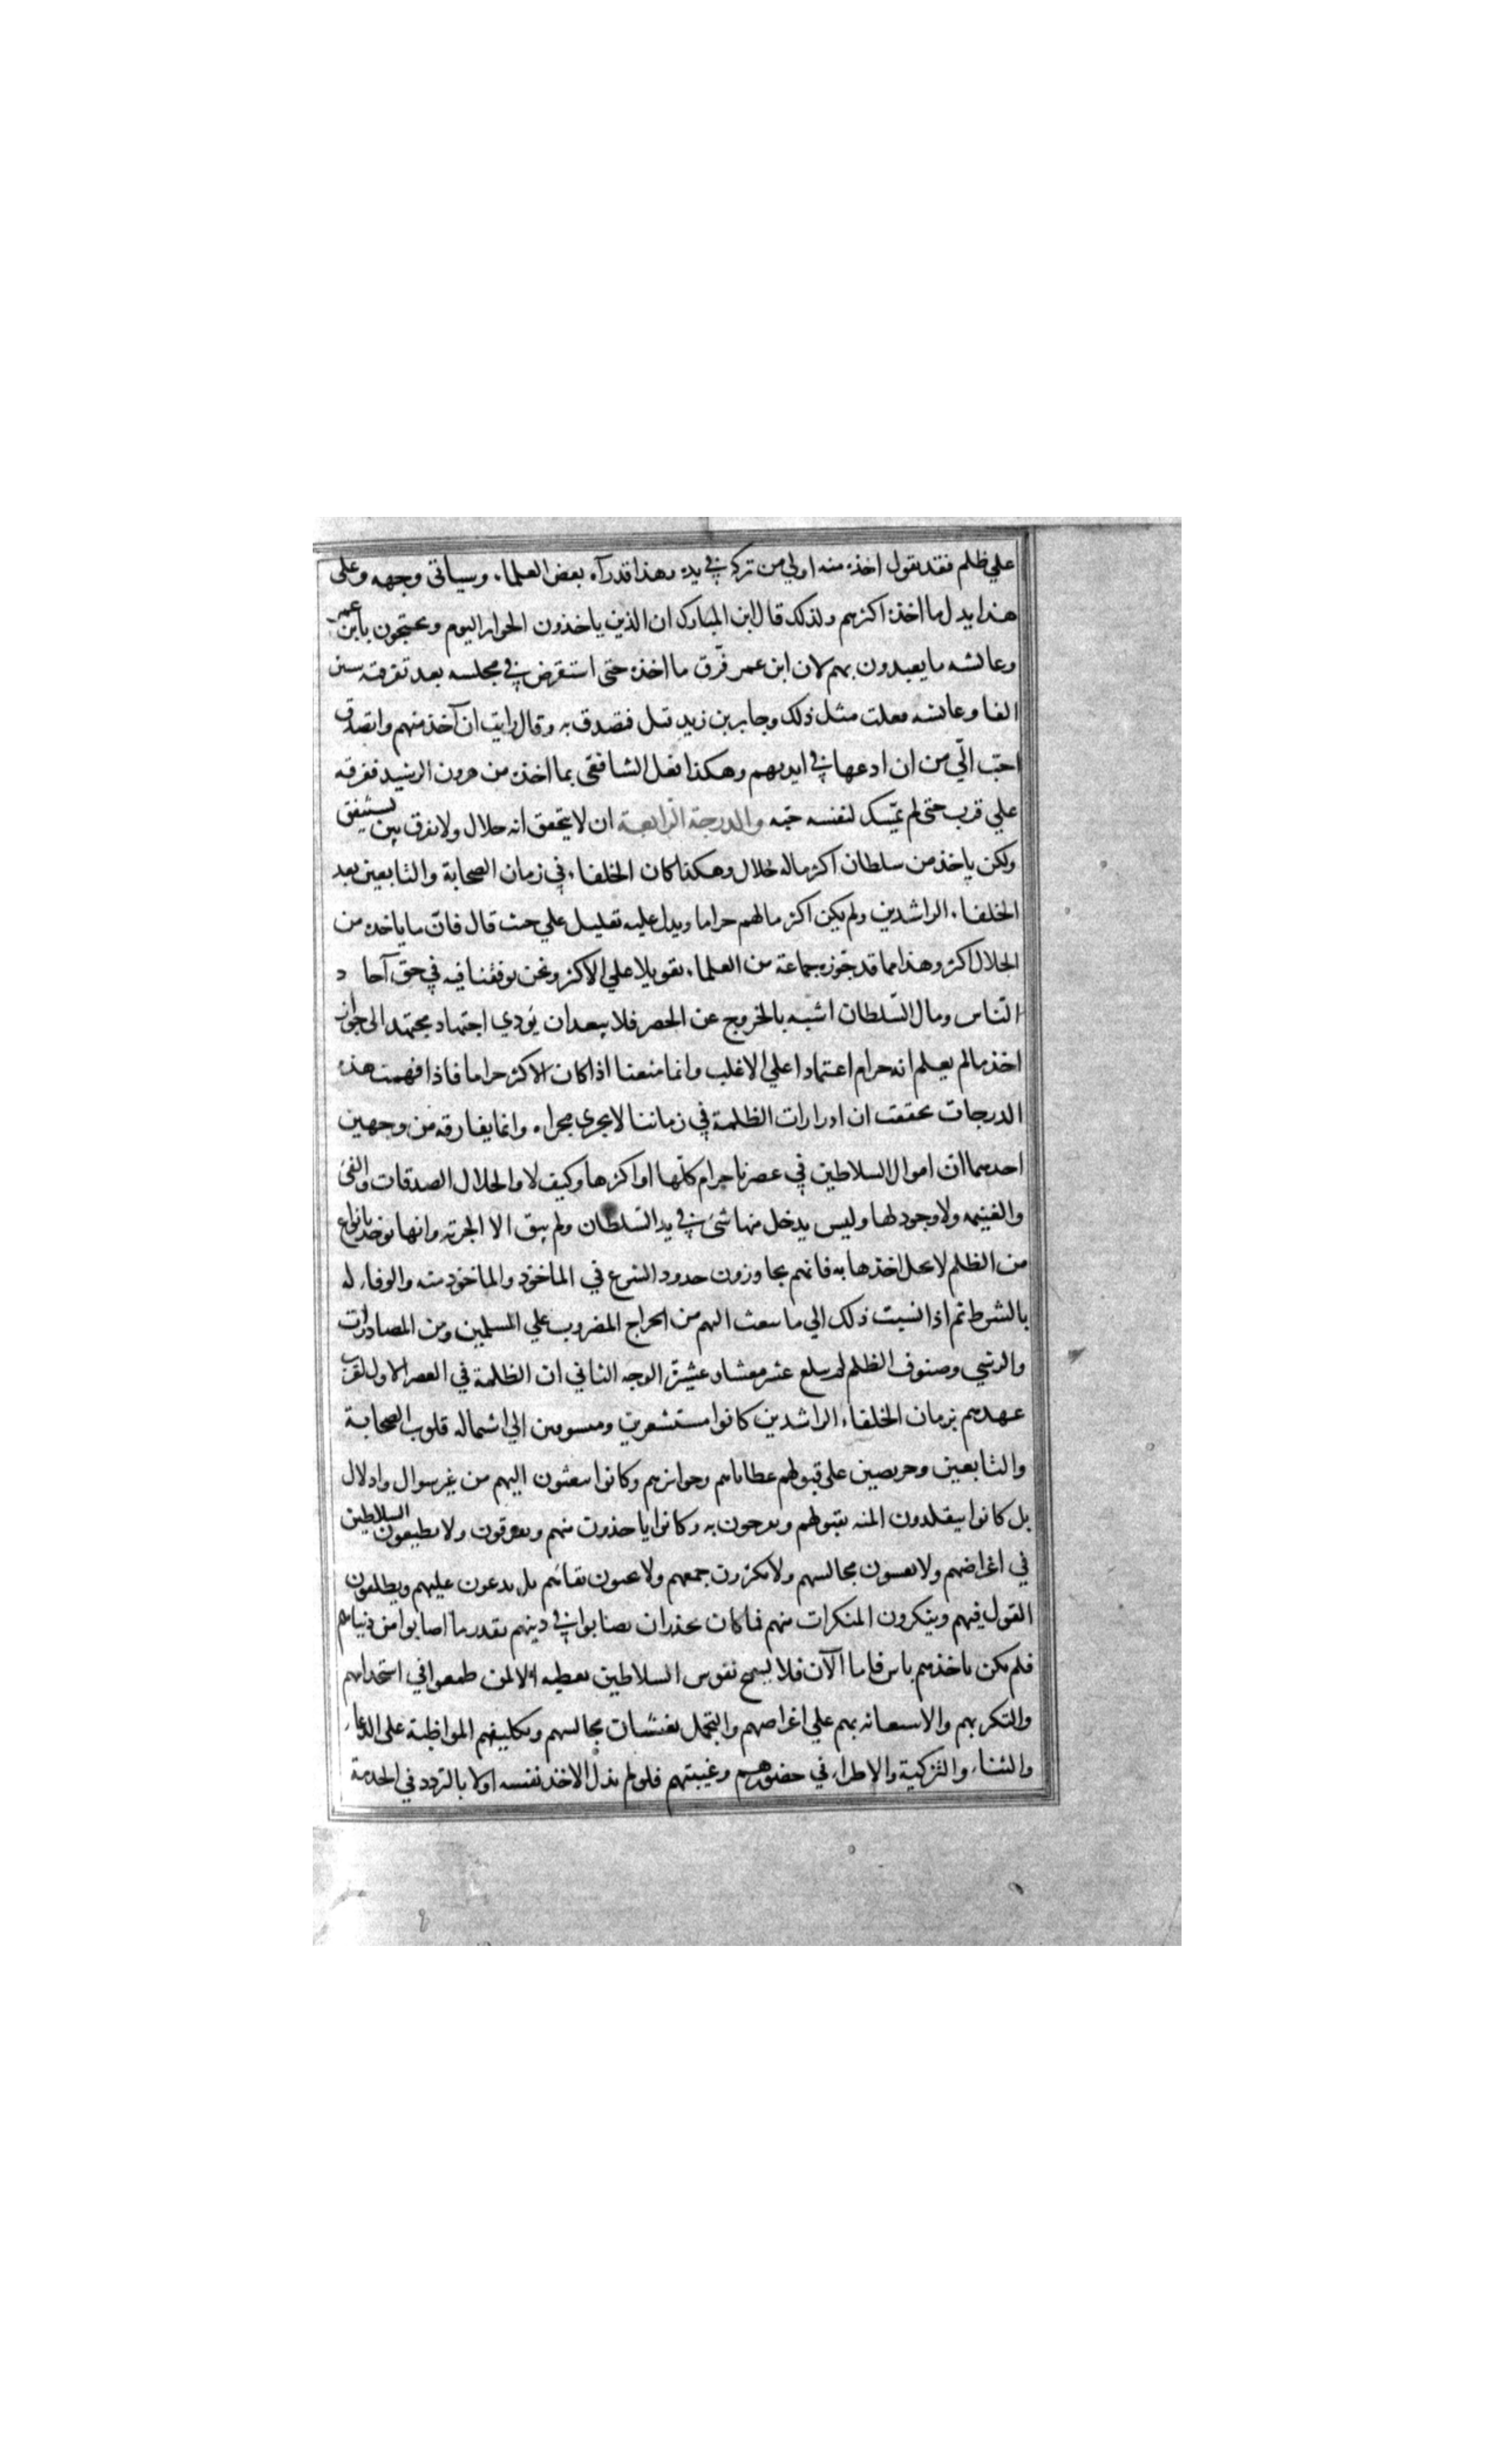 علي ظلم فقد نقول اخذه منه اولي من تركه في يده وهذا قد رآه بعض العلماء وسياتي وجهه وعلي
هذا يدل ما اخذه اكثرهم ولذلك قال ابن المبارك ان الذين ياخذون الجوايز اليوم ويحتجون بابن عمر
وعائشه ما يعبدون بهم لان ابن عمر فرّق ما اخذه حتى استقرض في مجلسه بعد تفرقه ستين
الفا وعائشه فعلت مثل ذلك وجابر بن زيد قبل فتصدق به وقال رايت ان آخذ منهم واتصدق
احبّ الّي من ان ادعها في ايديهم وهكذا فعل الشافعي بما اخذه من هرون الرشيد ففرقه
علي قرب حتى لم يمّسك لنفسه حبه والدرجة الرابعة ان لا يتحقق انه حلال ولا يفرق بل يستنفق
ولكن ياخذ من سلطان اكثر ماله حلال وهكذا كان الخلفاء في زمان الصحابة والتابعين بعد
الخلفاء الراشدين ولم يكن اكثر مالهم حراما ويدل عليه تعليل علي حيث قال فانّ ما ياخذه من
الحلال اكثر وهذا مما قد جّوزه جماعة من العلماء تعويلا علي الاكثر ونحن توقفنا فيه في حق آحاد
النّاس ومال السّلطان اشبه بالخروج عن الحصر فلا يبعد ان يؤدي اجتهاد مجتهد الى جواز
اخذ مالم يعلم انه حرام اعتمادا علي الاغلب وانما منعنا اذا كان الاكثر حراما فاذا فهمت هذه
الدرجات تحققت ان ادرارات الظلمة في زماننا لا يجرى مجراه وانما يفارقه من وجهين
احدهما ان اموال السلاطين في عصرنا حرام كلّها او اكثرها وكيف لا والحلال الصدقات والفئ
والغنيمه ولا وجود لها وليس يدخل منها شئ في يد السّلطان ولم يبق الا الجزيه وانها توخذ بانواع
من الظلم لا يحل اخذها به فانهم يجاوزون حدود الشرع في الماخوذ والماخوذ منه والوفاء له
بالشرط ثم اذا نسبت ذلك الي ما ينبعث اليهم من الخراج المضروب علي المسلمين ومن المصادرات
والرشي وصنوف الظلم لم يبلغ عشر معشار عشيره الوجه الثاني ان الظلمة في العصر الاول لقرب
عهدهم بزمان الخلفاء الراشدين كانوا مستشعرين ومتشوفين الي استماله قلوب الصحابة
والتابعين وحريصين على قبولهم عطاياهم وجوايزهم وكانوا يبعثون اليهم من غير سوال واذلال
بل كانوا يتقلدون المنه بقبولهم ويفرحون به وكانوا ياخذون منهم ويفرقون ولا يطيعون السلاطين
في اغراضهم ولا يغشون مجالسهم ولا يكثرون جمعهم ولا يحبون بقائهم بل يدعون عليهم ويطلقون
القول فيهم وينكرون المنكرات منهم فما كان يحذر ان يصابوا في دينهم بقدر ما اصابوا من دنياهم
فلم يكن باخذهم باس فاما الآن فلا يسمح نفوس السلاطين بعطيه الا لمن طمعوا في استخدامهم
والتكثر بهم والاستعانه بهم علي اغراضهم والتجمل بغشيان مجالسهم وتكليفهم المواظبة على الدعاء
والثناء والتزكية والاطراء في حضورهم وغيبتهم فلو لم يذل الاخذ نفسه اولا بالتردد في الخدمة